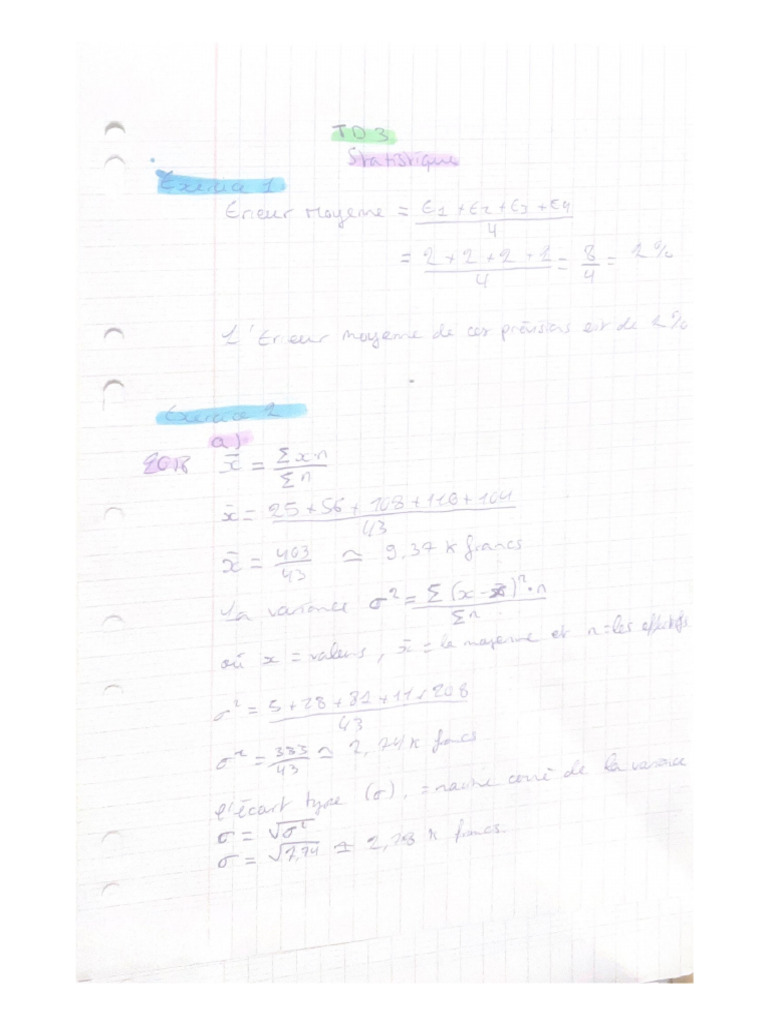 TD3
Statistique
Exercice 1
Erreur Moyenne = ε1 + ε2 + ε3 + ε4 / 4
= 2 + 2 + 2 + 1 / 4 = 8/4 = 2%
L'Erreur moyenne de ces prévisions est de 2%
Exercice 2
a)
2018 x̄ = Σx·n / Σn
x̄ = 25 + 56 + 108 + 110 + 104 / 43
x̄ = 403/43 ≃ 9,37 k francs
La variance σ² = Σ(x - x̄)²·n / Σn
où x = valeurs, x̄ = la moyenne et n = les effectifs
σ² = 5 + 28 + 81 + 11 + 208 / 43
σ² = 333/43 ≃ 7,74 k francs
l'écart type (σ), = racine carré de la variance
σ = √σ²
σ = √7,74 ≃ 2,78 k francs.